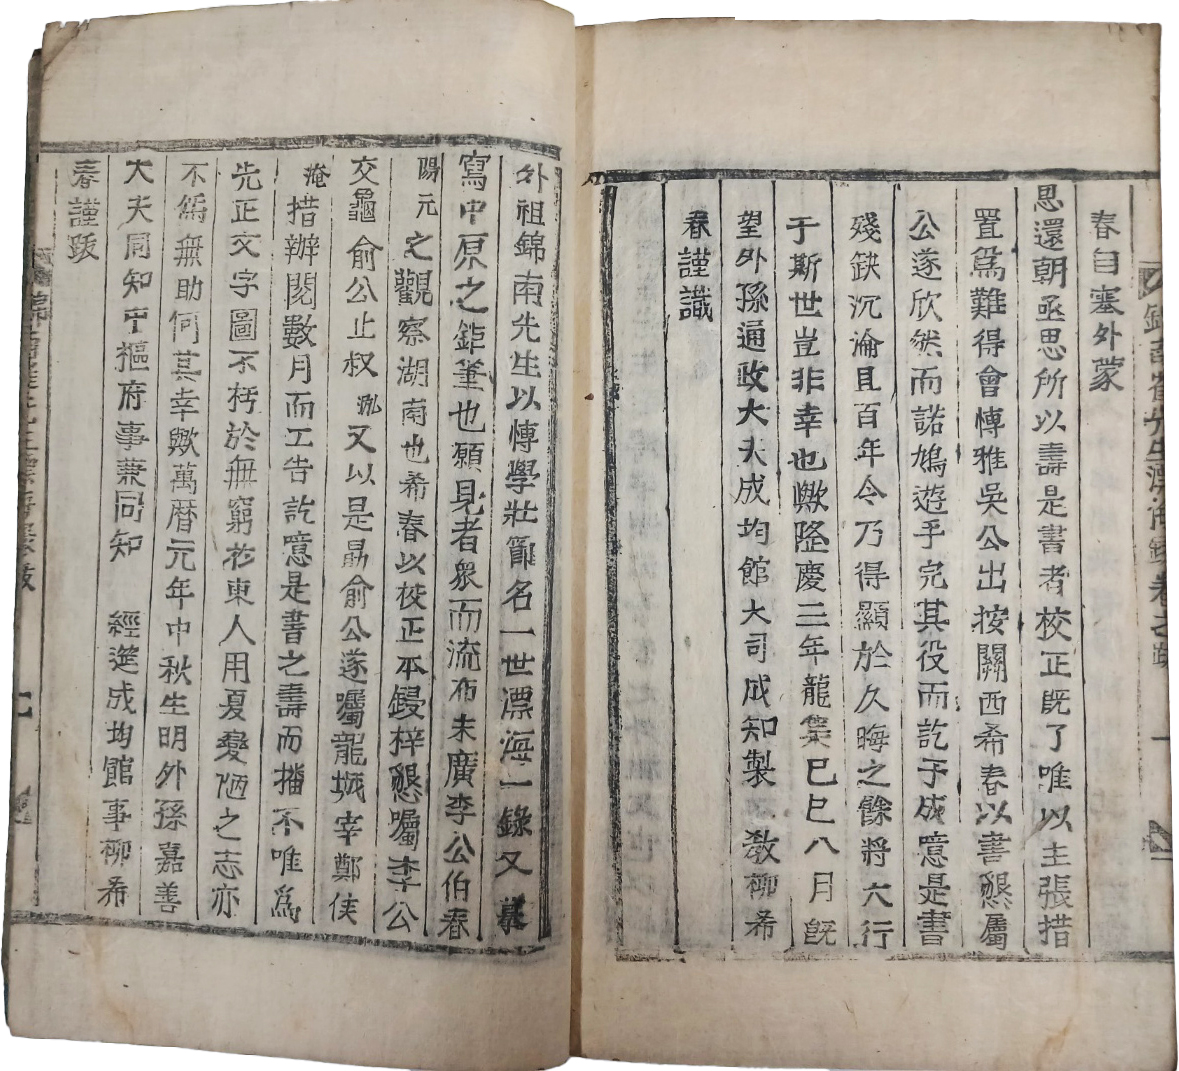 春自塞外蒙
恩還朝亟思所以壽是書者校正旣了唯以主張措
置爲難得會愽雅吳公出按關西希春以書懇屬
公遂欣然而諾鳩遊手完其役而訖于成噫是書
殘缺沉淪且百年今乃得顯於久晦之餘將大行
于斯世豈非幸也歟隆慶三年龍集己巳八月旣
望外孫通政大夫成均館大司成知製 敎柳希
春謹識
外祖錦南先生以愽學壯節名一世漂海一錄又
寫中原之鉅筆也願見者衆而流布未廣李公伯春
陽元之觀察湖南也希春以校正本鋟梓懇囑李公
交龜俞公止叔泓又以是勗俞公遂囑龍城宰鄭侯
淹措辦閱數月而工告訖噫是書之壽而播不唯爲
先正文字圖不朽於無窮於東人用夏變陋之志亦
不爲無助何其幸歟萬曆元年中秋生明外孫嘉善
大夫同知中樞府事兼同知 經筵成均館事柳希
春謹跋